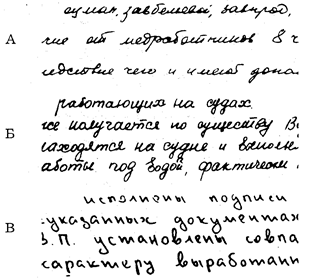 А
чие от медработников 8 ч
едствие чего и имело
работающих на судах.
Б
же получается по существу В
находятся на судне и выполне
аботы под водой, фактически
исполнены подписи
указанных документах
З.П. установлены совпа
В
характеру выработанн